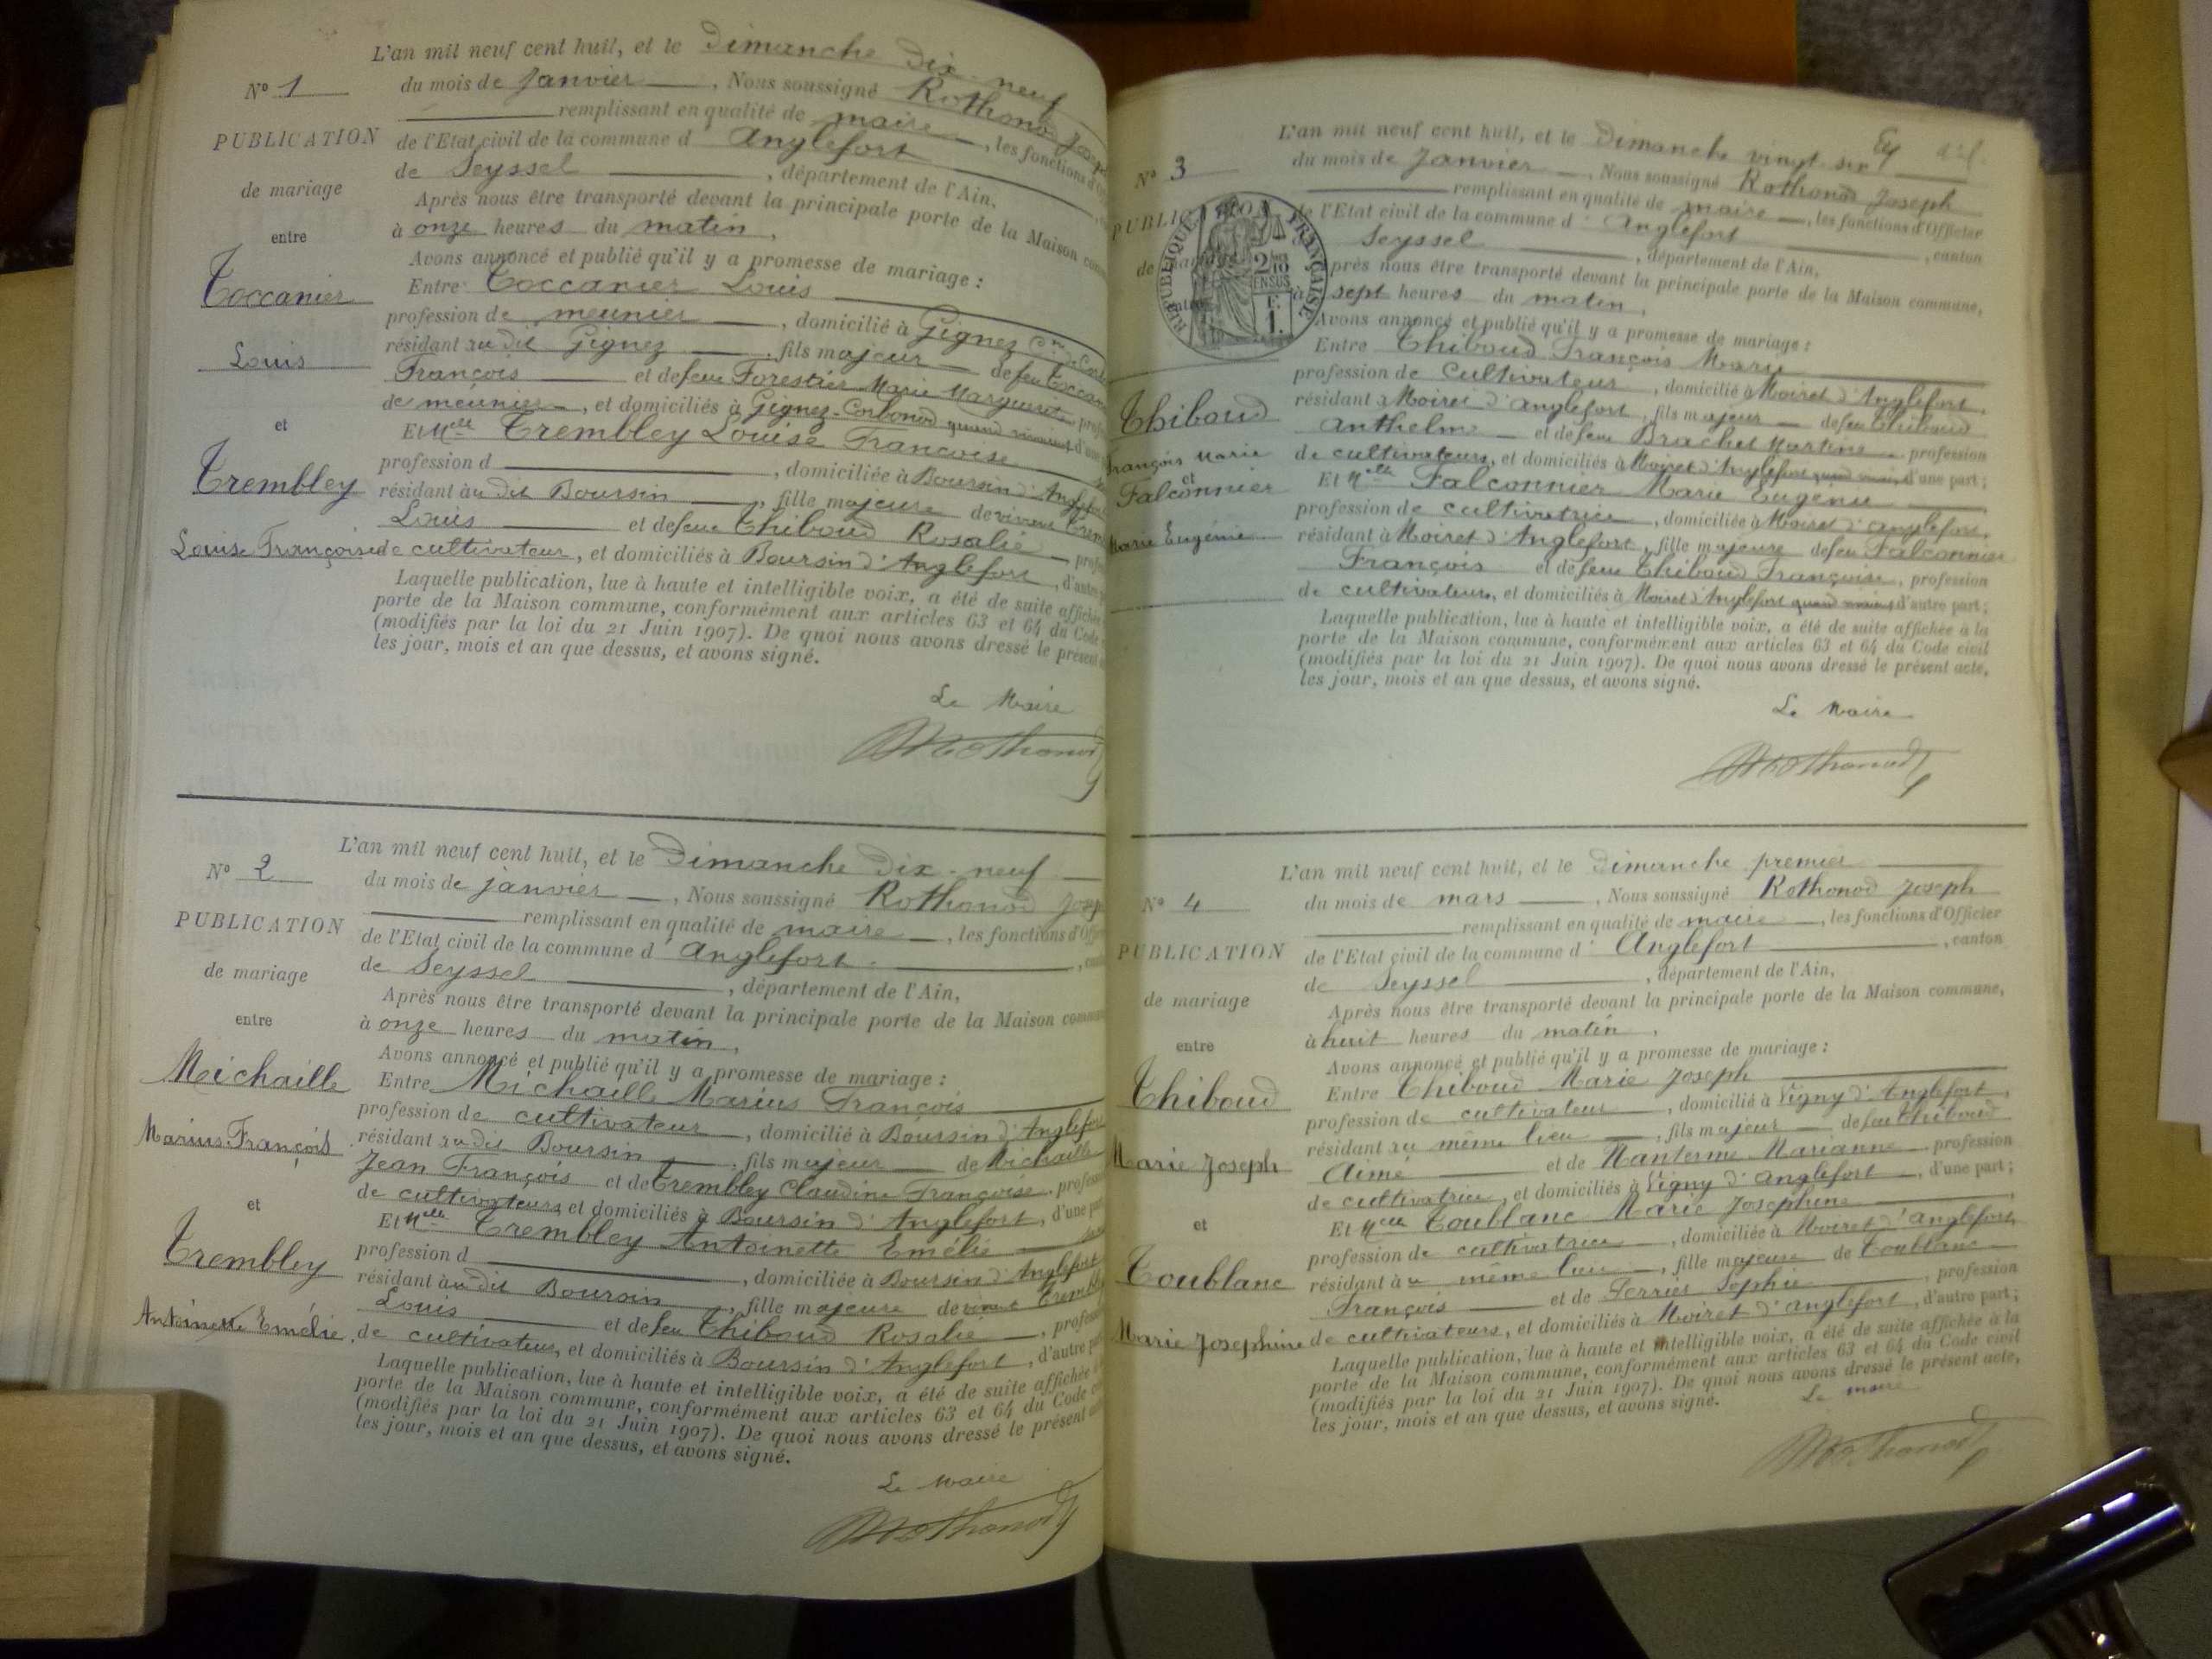 L'an mil neuf cent huit, et le Dimanche Dix-neuf
N° 1
du mois de Janvier, Nous soussigné Rothonod
remplissant en qualité de maire, les fonctions
PUBLICATION
de l'Etat civil de la commune d' Anglefort
de Seyssel, département de l'Ain,
de mariage
Après nous être transporté devant la principale porte de la Maison
à onze heures du matin,
entre
Avons annoncé et publié qu'il y a promesse de mariage :
Toccanier
Entre Toccanier Louis
profession de meunier, domicilié à Gignez
Louis
résidant au dit Gignez, fils majeur de feu
François et de feue Forestier Marie Marguerite
de meunier, et domiciliés à Gignez-Corbonod quand vivaient
et
Et Melle Trembley Louise Françoise
profession d, domiciliée à Boursin d'
Trembley
résidant au dit Boursin, fille majeure de vivant
Louis et de feue Thiboud Rosalie
Louise Françoise
de cultivateur, et domiciliés à Boursin d'Anglefort, d'autre
Laquelle publication, lue à haute et intelligible voix, a été de suite affichée
porte de la Maison commune, conformément aux articles 63 et 64 du Code
(modifiés par la loi du 21 Juin 1907). De quoi nous avons dressé le présent
les jour, mois et an que dessus, et avons signé.
Le Maire
Rothonod
L'an mil neuf cent huit, et le Dimanche Dix-neuf
N° 2
du mois de janvier, Nous soussigné Rothonod
remplissant en qualité de maire, les fonctions
PUBLICATION
de l'Etat civil de la commune d' Anglefort
de Seyssel, département de l'Ain,
de mariage
Après nous être transporté devant la principale porte de la Maison
à onze heures du matin,
entre
Avons annoncé et publié qu'il y a promesse de mariage :
Michaille
Entre Michaille Marius François
profession de cultivateur, domicilié à Boursin d'
Marius François
résidant au dit Boursin, fils majeur de Michaille
Jean François et de Trembley Claudine Françoise
de cultivateurs, et domiciliés à Boursin d'Anglefort, d'une
et
Et Melle Trembley Antoinette Emélie
profession d, domiciliée à Boursin d'Anglefort
Trembley
résidant au dit Boursin, fille majeure de vivant
Louis et de feu Thiboud Rosalie
Antoinette Emélie
de cultivateur, et domiciliés à Boursin d'Anglefort, d'autre
Laquelle publication, lue à haute et intelligible voix, a été de suite affichée
porte de la Maison commune, conformément aux articles 63 et 64 du Code
(modifiés par la loi du 21 Juin 1907). De quoi nous avons dressé le présent
les jour, mois et an que dessus, et avons signé.
Le Maire
Rothonod
L'an mil neuf cent huit, et le Dimanche vingt six
N° 3
du mois de Janvier, Nous soussigné Rothonod Joseph
remplissant en qualité de maire, les fonctions d'Officier
de l'Etat civil de la commune d' Anglefort, canton
Seyssel, département de l'Ain,
REPUBLIQUE FRANÇAISE
2/10 EN SUS
F. 1.
Après nous être transporté devant la principale porte de la Maison commune,
à sept heures du matin,
Avons annoncé et publié qu'il y a promesse de mariage :
Entre Thiboud François Marie
profession de Cultivateur, domicilié à Moiret d'Anglefort,
résidant à Moiret d'Anglefort, fils majeur de feu Thiboud
Thiboud
Anthelme et de feue Brachet Martine, profession
François Marie
de cultivateurs, et domiciliés à Moiret d'Anglefort quand vivaient d'une part ;
et
Et Melle Falconnier Marie Eugénie
Falconnier
profession de cultivatrice, domiciliée à Moiret d'Anglefort,
Marie Eugénie
résidant à Moiret d'Anglefort, fille majeure de feu Falconnier
François et de feue Thiboud Françoise, profession
de cultivateurs, et domiciliés à Moiret d'Anglefort quand vivaient d'autre part ;
Laquelle publication, lue à haute et intelligible voix, a été de suite affichée à la
porte de la Maison commune, conformément aux articles 63 et 64 du Code civil
(modifiés par la loi du 21 Juin 1907). De quoi nous avons dressé le présent acte,
les jour, mois et an que dessus, et avons signé.
Le Maire
Rothonod
L'an mil neuf cent huit, et le Dimanche premier
N° 4
du mois de mars, Nous soussigné Rothonod Joseph
remplissant en qualité de maire, les fonctions d'Officier
PUBLICATION
de l'Etat civil de la commune d' Anglefort, canton
de Seyssel, département de l'Ain,
de mariage
Après nous être transporté devant la principale porte de la Maison commune,
à huit heures du matin,
entre
Avons annoncé et publié qu'il y a promesse de mariage :
Thiboud
Entre Thiboud Marie Joseph
profession de cultivateur, domicilié à Vigny d'Anglefort,
résidant au même lieu, fils majeur de feu Thiboud
Marie Joseph
Aimé et de Nanterme Marianne, profession
de cultivatrice, et domiciliés à Vigny d'Anglefort, d'une part ;
et
Et Melle Toublanc Marie Josephine
profession de cultivatrice, domiciliée à Moiret d'Anglefort,
Toublanc
résidant au même lieu, fille majeure de Toublanc
François et de Perrier Sophie, profession
Marie Josephine
de cultivateurs, et domiciliés à Moiret d'Anglefort, d'autre part ;
Laquelle publication, lue à haute et intelligible voix, a été de suite affichée à la
porte de la Maison commune, conformément aux articles 63 et 64 du Code civil
(modifiés par la loi du 21 Juin 1907). De quoi nous avons dressé le présent acte,
les jour, mois et an que dessus, et avons signé.
Le maire
Rothonod